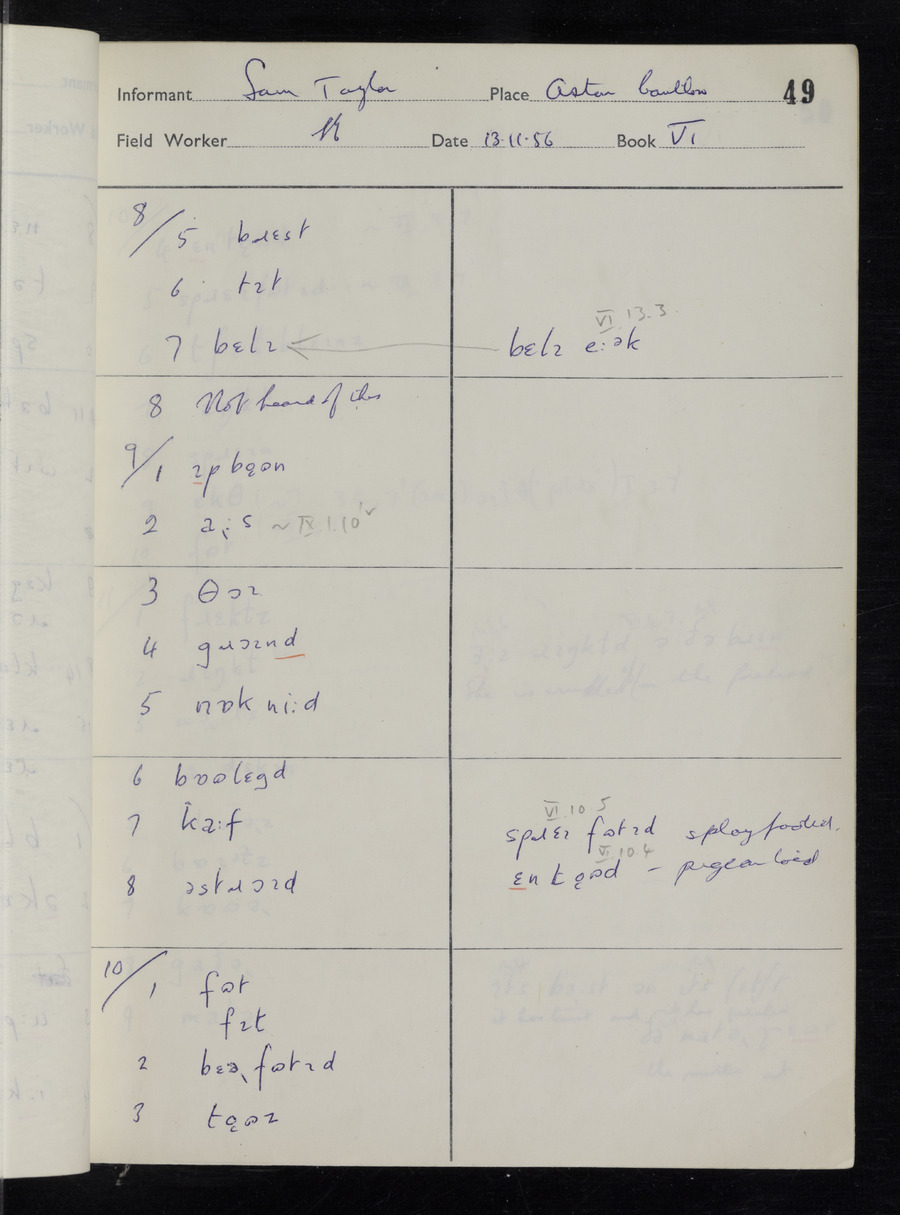 Informant Sam Taylor Place Aston Cantlow 49
Field Worker Date 13·11·56 Book VI
8/5 bɹɛst
6 tɪt
VI.13.3
7 bɛlɪ bɛlɪ eːək
8 Not heard of this
9/1 ɪp bǫən
2 ~ IX.1.10
3 θɔɪ
4 gɹɔɪnd
5 nɒk niːd
6 bɒəlɛgd
VI.10.5
7 kaːf spɹɛɪ fətɪd splayfooted.
VI.10.4
8 əstɹɔɪd ɛn tǫəd – pigeon toed
10/1 fət
fɪt
2 fətɪd
3 tǫəz